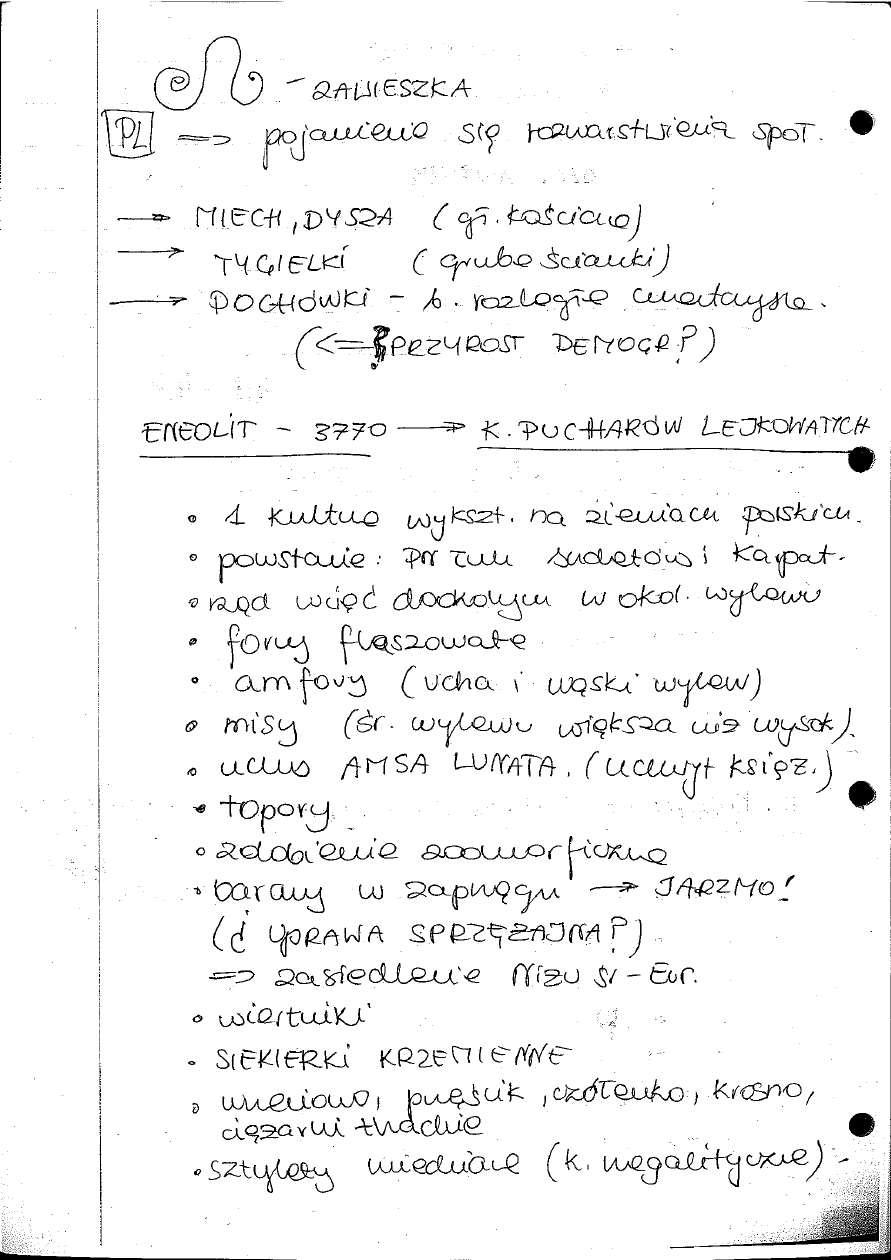 – ZAWIESZKA
PL ⇒ pojawienie się rozwarstwienia społ.
→ MIECH, DYSZA (gł. kościane)
→ TYGIELKI (grube ścianki)
→ POCHÓWKI – b. rozległe cmentarzyska.
(<= PRZYROST DEMOGR?)
ENEOLIT – 3770 → K. PUCHARÓW LEJKOWATYCH
• 1 kultura wykszt. na ziemiach polskich.
• powstanie: PN Sudetów i Karpat.
• rząd wcięć dookolnych w okol. wylewu
• formy flaszowate
• amfory (ucha i wąski wylew)
• misy (śr. wylewu większa niż wysok).
• ucho AMSA LUNATA. (uchwyt księż.)
• topory
• zdobienie zoomorficzne
• barany w zaprzęgu → JARZMO!
(¿ UPRAWA SPRZĘŻAJNA?)
⇒ zasiedlenie Niżu Śr – Eur.
• wiertniki
• SIEKIERKI KRZEMIENNE
• wrzeciono, przęślik, czółenko, krosno,
ciężarki tkackie
• sztylety miedziane (k. megalityczne) -